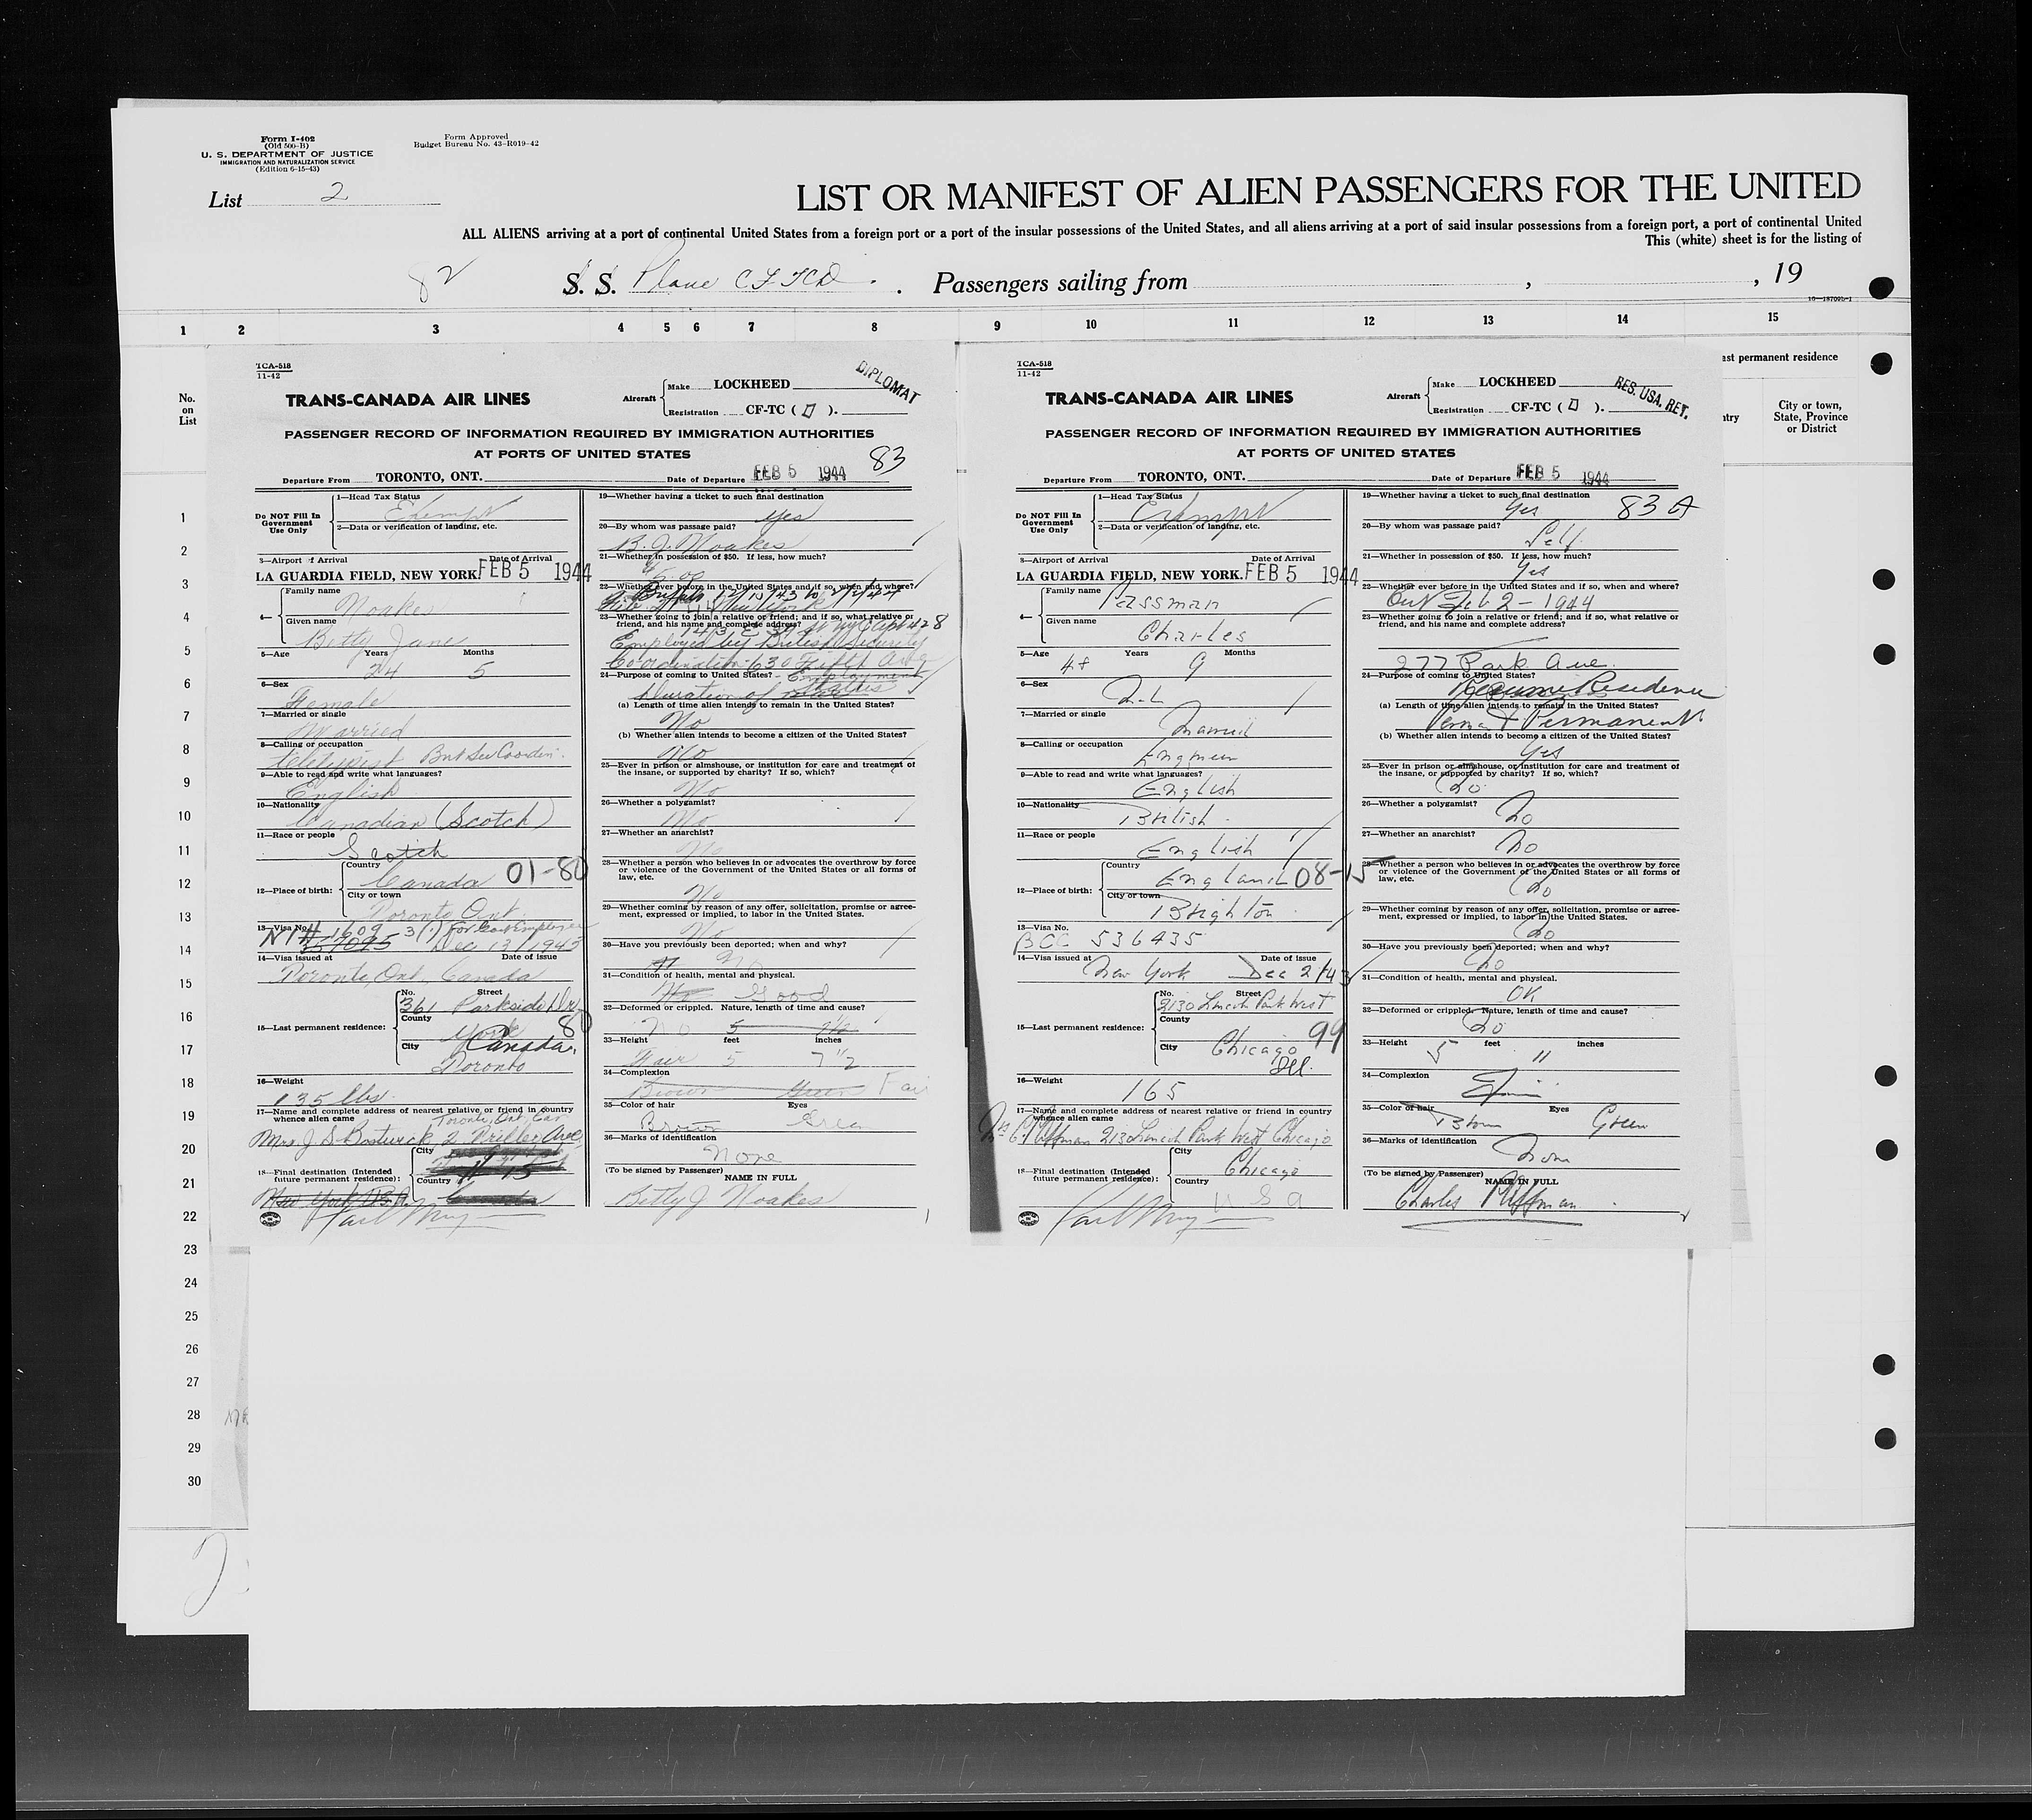 Form I-402
(Old 500-B)
U. S. DEPARTMENT OF JUSTICE
IMMIGRATION AND NATURALIZATION SERVICE
(Edition 6-15-43)
Form Approved
Budget Bureau No. 43-R019-42
List 2
LIST OR MANIFEST OF ALIEN PASSENGERS FOR THE UNITED
ALL ALIENS arriving at a port of continental United States from a foreign port or a port of the insular possessions of the United States, and all aliens arriving at a port of said insular possessions from a foreign port, a port of continental United
This (white) sheet is for the listing of
82
S. S. Plane CF TCD. Passengers sailing from , , 19
1 2 3 4 5 6 7 8 9 10 11 12 13 14 15
No.
on
List
ast permanent residence
try
City or town,
State, Province
or District
1
2
3
4
5
6
7
8
9
10
11
12
13
14
15
16
17
18
19
20
21
22
23
24
25
26
27
28
29
30
TCA-518
11-42
TRANS-CANADA AIR LINES
Aircraft
Make LOCKHEED
Registration CF-TC ( D ).
DIPLOMAT
PASSENGER RECORD OF INFORMATION REQUIRED BY IMMIGRATION AUTHORITIES
AT PORTS OF UNITED STATES
83
Departure From TORONTO, ONT. Date of Departure FEB 5 1944
Do NOT Fill In
Government
Use Only
1—Head Tax Status
Exempt
2—Data or verification of landing, etc.
3—Airport of Arrival Date of Arrival
LA GUARDIA FIELD, NEW YORK. FEB 5 1944
4—
Family name
Noakes
Given name
Betty Jane
5—Age Years Months
24 5
6—Sex
Female
7—Married or single
Married
8—Calling or occupation
Teletypist Brit Sec Coordin.
9—Able to read and write what languages?
English
10—Nationality
Canadian (Scotch)
11—Race or people
Scotch
12—Place of birth:
Country
Canada 01-80
City or town
Toronto Ont.
13—Visa No.
1609 3(1) For Govt Employee
57095 Dec 13/1943
14—Visa issued at Date of issue
Toronto, Ont, Canada
15—Last permanent residence:
No. Street
361 Parkside Dr.
County
York 80
Canada
City
Toronto
16—Weight
135 lbs.
17—Name and complete address of nearest relative or friend in country
whence alien came
Toronto, Ont, Can
Mrs. J S Bostwick, 2 Ave
18—Final destination (Intended
future permanent residence):
City
Country
15
New York
19—Whether having a ticket to such final destination
Yes
20—By whom was passage paid?
B. J. Noakes
21—Whether in possession of $50. If less, how much?
22—Whether ever before in the United States and if so, when and where?
New York
23—Whether going to join a relative or friend; and if so, what relative or
friend, and his name and complete address?
Employed by British Security
Co-ordination 630 Fifth Ave
24—Purpose of coming to United States? - Employment
Duration of
(a) Length of time alien intends to remain in the United States?
No
(b) Whether alien intends to become a citizen of the United States?
No
25—Ever in prison or almshouse, or institution for care and treatment of
the insane, or supported by charity? If so, which?
No
26—Whether a polygamist?
No
27—Whether an anarchist?
No
28—Whether a person who believes in or advocates the overthrow by force
or violence of the Government of the United States or all forms of
law, etc.
No
29—Whether coming by reason of any offer, solicitation, promise or agree-
ment, expressed or implied, to labor in the United States.
No
30—Have you previously been deported; when and why?
No
31—Condition of health, mental and physical.
Good
32—Deformed or crippled. Nature, length of time and cause?
No
33—Height feet inches
5 7 1/2
34—Complexion
Fair
35—Color of hair Eyes
Brown Green
36—Marks of identification
None
(To be signed by Passenger) NAME IN FULL
Betty J Noakes
TCA-518
11-42
TRANS-CANADA AIR LINES
Aircraft
Make LOCKHEED
Registration CF-TC ( D ).
RES. USA. RET.
PASSENGER RECORD OF INFORMATION REQUIRED BY IMMIGRATION AUTHORITIES
AT PORTS OF UNITED STATES
Departure From TORONTO, ONT. Date of Departure FEB 5 1944
Do NOT Fill In
Government
Use Only
1—Head Tax Status
Exempt
2—Data or verification of landing, etc.
3—Airport of Arrival Date of Arrival
LA GUARDIA FIELD, NEW YORK. FEB 5 1944
4—
Family name
Passman
Given name
Charles
5—Age Years Months
48 9
6—Sex
7—Married or single
Married
8—Calling or occupation
Engineer
9—Able to read and write what languages?
English
10—Nationality
British
11—Race or people
English
12—Place of birth:
Country
England 08-15
City or town
Brighton
13—Visa No.
BCC 536435
14—Visa issued at Date of issue
New York Dec 2/43
15—Last permanent residence:
No. Street
2130 Lincoln Park West
County
99
City
Chicago
Ill.
16—Weight
165
17—Name and complete address of nearest relative or friend in country
whence alien came
Mrs C. Passman 2130 Lincoln Park West Chicago
18—Final destination (Intended
future permanent residence):
City
Chicago
Country
U S A
19—Whether having a ticket to such final destination
Yes 83 A
20—By whom was passage paid?
Self
21—Whether in possession of $50. If less, how much?
Yes
22—Whether ever before in the United States and if so, when and where?
Out Feb 2 - 1944
23—Whether going to join a relative or friend; and if so, what relative or
friend, and his name and complete address?
277 Park Ave.
24—Purpose of coming to United States?
Resume Residence
(a) Length of time alien intends to remain in the United States?
Permanent
(b) Whether alien intends to become a citizen of the United States?
Yes
25—Ever in prison or almshouse, or institution for care and treatment of
the insane, or supported by charity? If so, which?
No
26—Whether a polygamist?
No
27—Whether an anarchist?
No
28—Whether a person who believes in or advocates the overthrow by force
or violence of the Government of the United States or all forms of
law, etc.
No
29—Whether coming by reason of any offer, solicitation, promise or agree-
ment, expressed or implied, to labor in the United States.
No
30—Have you previously been deported; when and why?
No
31—Condition of health, mental and physical.
OK
32—Deformed or crippled. Nature, length of time and cause?
No
33—Height feet inches
5 11
34—Complexion
35—Color of hair Eyes
Brown Green
36—Marks of identification
None
(To be signed by Passenger) NAME IN FULL
Charles Passman